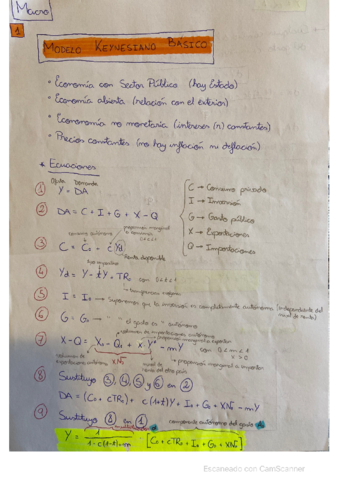 Macro
1
MODELO KEYNESIANO BÁSICO
• Economía con Sector Público (hay Estado)
• Economía abierta (relación con el exterior)
• Econonomía no monetaria (intereses (r) constantes)
• Precios constantes (no hay inflación ni deflación)
• Ecuaciones
Oferta Demanda
① Y = DA
② DA = C + I + G + X - Q
C → Consumo privado
I → Inversión
G → Gasto público
X → Exportaciones
Q → Importaciones
consumo autónomo
propensión marginal a consumir
③ C = C₀ + c Yd
renta disponible
④ Yd = Y - tY + TR₀ con 0≤t≤1
⑤ I = I₀ → Suponemos que la inversión es completamente autónoma (independiente del nivel de renta)
⑥ G = G₀ → " " El gasto es " autónomo
⑦ X - Q = X₀ - Q₀ + x Y* - mY
XN₀
→ propensión marginal a importar
⑧ Sustituyo ③, ④, ⑤ y ⑥ en ②
DA = (C₀ + cTR₀) + c(1-t)Y + I₀ + G₀ + XN₀ - mY
⑨ Sustituyo ⑧ en ①
componente autónomo del gasto
Y = 1 / 1-c(1-t)+m · [C₀ + cTR₀ + I₀ + G₀ + XN₀]
Escaneado con CamScanner